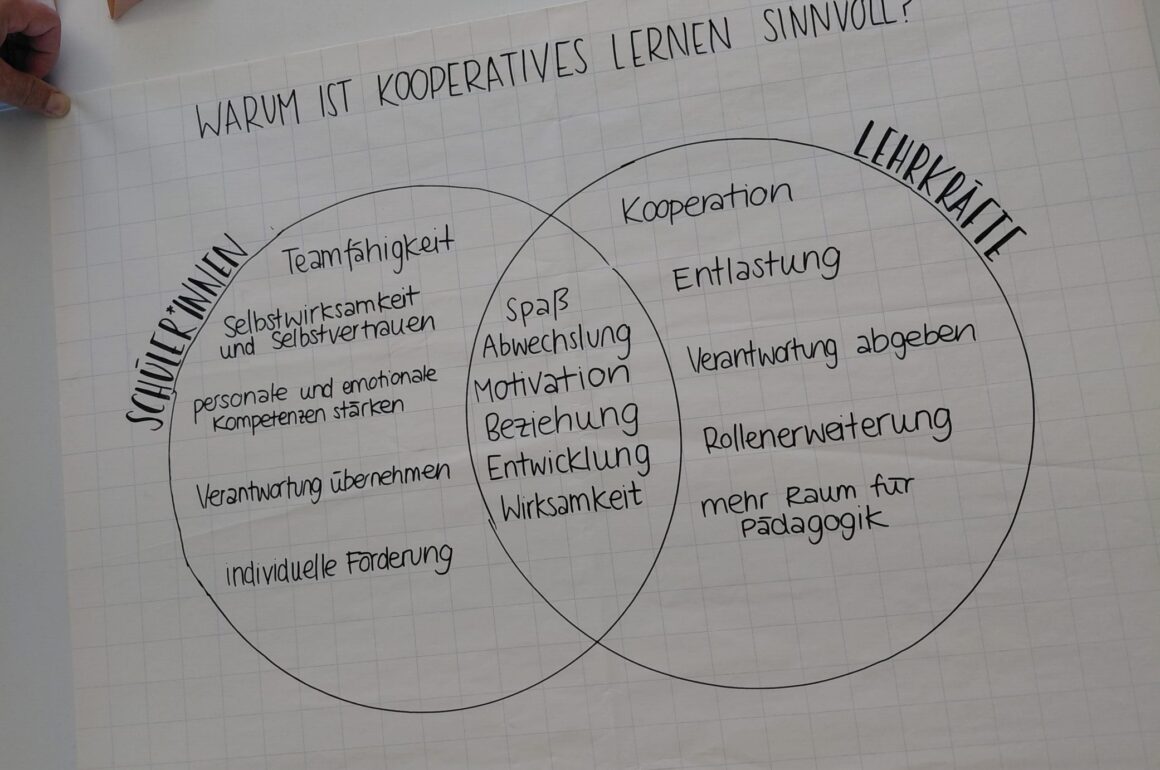 WARUM IST KOOPERATIVES LERNEN SINNVOLL?
SCHÜLER*INNEN
Teamfähigkeit
Selbstwirksamkeit
und Selbstvertrauen
personale und emotionale
Kompetenzen stärken
Verantwortung übernehmen
individuelle Förderung
Spaß
Abwechslung
Motivation
Beziehung
Entwicklung
Wirksamkeit
LEHRKRÄFTE
Kooperation
Entlastung
Verantwortung abgeben
Rollenerweiterung
mehr Raum für
Pädagogik